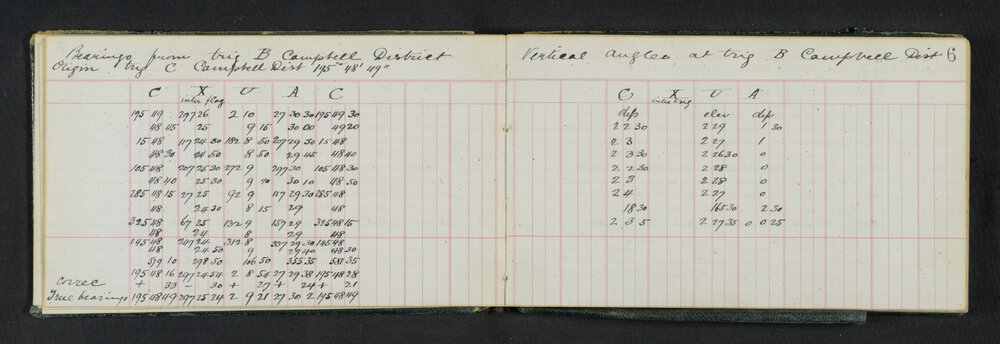 Bearings from trig B Campbell District
Origin trig C Campbell Dist 195° 48' 49"
C X U A C
inter flag
195 49 297 26 2 10 27 30 30 195 49 30
48 45 25 9 15 30 00 49 20
15 48 117 24 30 182 8 50 207 29 50 15 48
48 30 24 50 8 50 29 45 48 40
105 48 207 25 30 272 9 297 30 105 48 30
48 40 25 30 9 40 30 10 48 50
285 48 15 27 25 92 9 117 29 30 285 48
48 24 30 8 15 29 48
325 48 67 25 132 9 157 29 325 48 15
48 24 8 29 48
145 48 247 24 312 8 337 29 30 145 48
48 24 50 9 29 40 48 30
599 10 298 50 106 50 355 35 581 35
195 48 16 297 24 54 2 8 54 27 29 38 195 48 28
correc + 33 - 30 + 27 + 24 + 21
True bearings 195 48 49 297 25 24 2 9 21 27 30 2 195 48 49
Vertical angles at trig B Campbell Dist 6
C X U A
inter trig
dep elev dep
2 2 30 2 29 1 30
2 3 2 27 1
2 3 30 2 26 30 0
2 2 30 2 28 0
2 3 2 28 0
2 4 2 27 0
18 30 165 30 2 30
2 3 5 2 27 35 0 0 25